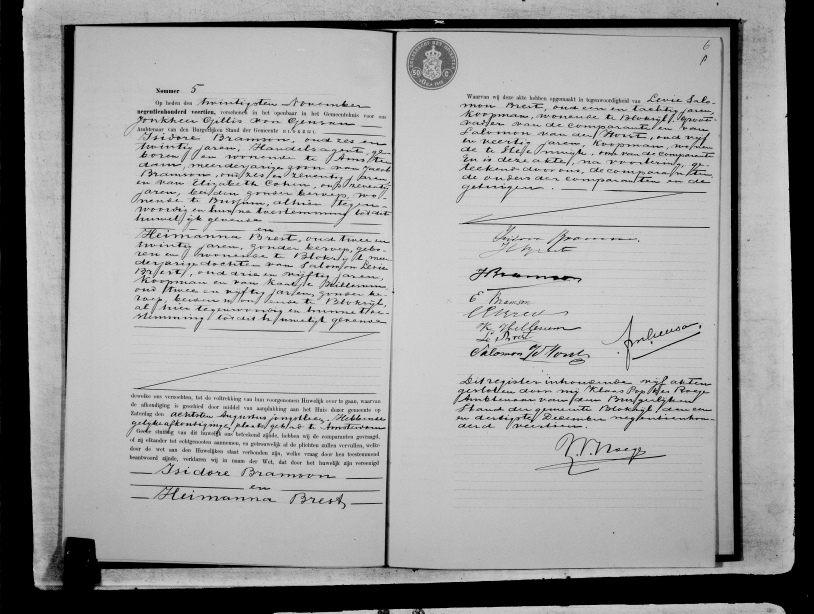 Nummer 5
Op heden den twintigsten November
negentienhonderd veertien, verscheen in het openbaar in het Gemeentehuis voor ons
Jonkheer
Ambtenaar van den Burgerlijken Stand der Gemeente
Isidore Bramson, oud zes en
twintig jaren, Handelsagent, ge-
boren en wonende te Amster
dam, meerderjarige zoon van Jacob
Bramson, oud zes en zeventig jaren,
en van Elizabeth Cohen, oud zeventig
jaren, beiden zonder beroep, wo-
nende te Bussum, alhier tegen-
woordig en hunne toestemming tot dit
huwelijk gevende
en
Heimanna Brest, oud twee en
twintig jaren, zonder beroep, gebo-
ren en wonende te Blokzijl, meer
derjarige dochter van Salomon Levie
Brest, oud drie en vijftig jaren,
koopman en van Kaatje Hillesum,
oud twee en vijftig jaren, zonder be-
roep, beiden wonende te Blokzijl,
al hier tegenwoordig en hunne toe-
stemming tot dit huwelijk gevende
dewelke ons verzochten, tot de voltrekking van hun voorgenomen Huwelijk over te gaan, waarvan
de afkondiging is geschied door middel van aanplakking aan het Huis dezer gemeente op
Zaterdag den achtsten Augustus jongstleden. Hebbende
gelijke afkondiging plaats gehad te Amsterdam
Geene stuiting van dit huwelijk ons beteekend zijnde, hebben wij de comparanten gevraagd,
of zij elkander tot echtgenooten aannemen, en getrouwelijk al de plichten zullen vervullen, welke
door de wet aan den Huwelijken staat verbonden zijn, welke vraag door hen bestemmend
beantwoord zijnde, verklaren wij in naam der Wet, dat door het huwelijk zijn vereenigd
Isidore Bramson
en
Heimanna Brest
6
Waarvan wij deze akte hebben opgemaakt in tegenwoordigheid van Levie Salo-
mon Brest, oud een en tachtig jaren,
koopman, wonende te Blokzijl, groot-
vader van de comparante en van
Salomon van der Horst, oud vijf
en veertig jaren, koopman, wonen
de te, oom van de comparante
En is deze akte, na voorlezing, ge-
teekend door ons, de comparanten,
de ouders der comparanten en de
getuigen.
Isidore Bramson.
H Brest
J Bramson
E Bramson
S L Brest
K Hillesum
L S Brest
Salomon v d Horst
Dit register inhoudende vijf akten
gesloten door mij Klaas Popkes Roege
Ambtenaar van den Burgerlijken
Stand der gemeente Blokzijl, den een
en dertigste December negentienhon-
derd veertien.
K. P. Roege